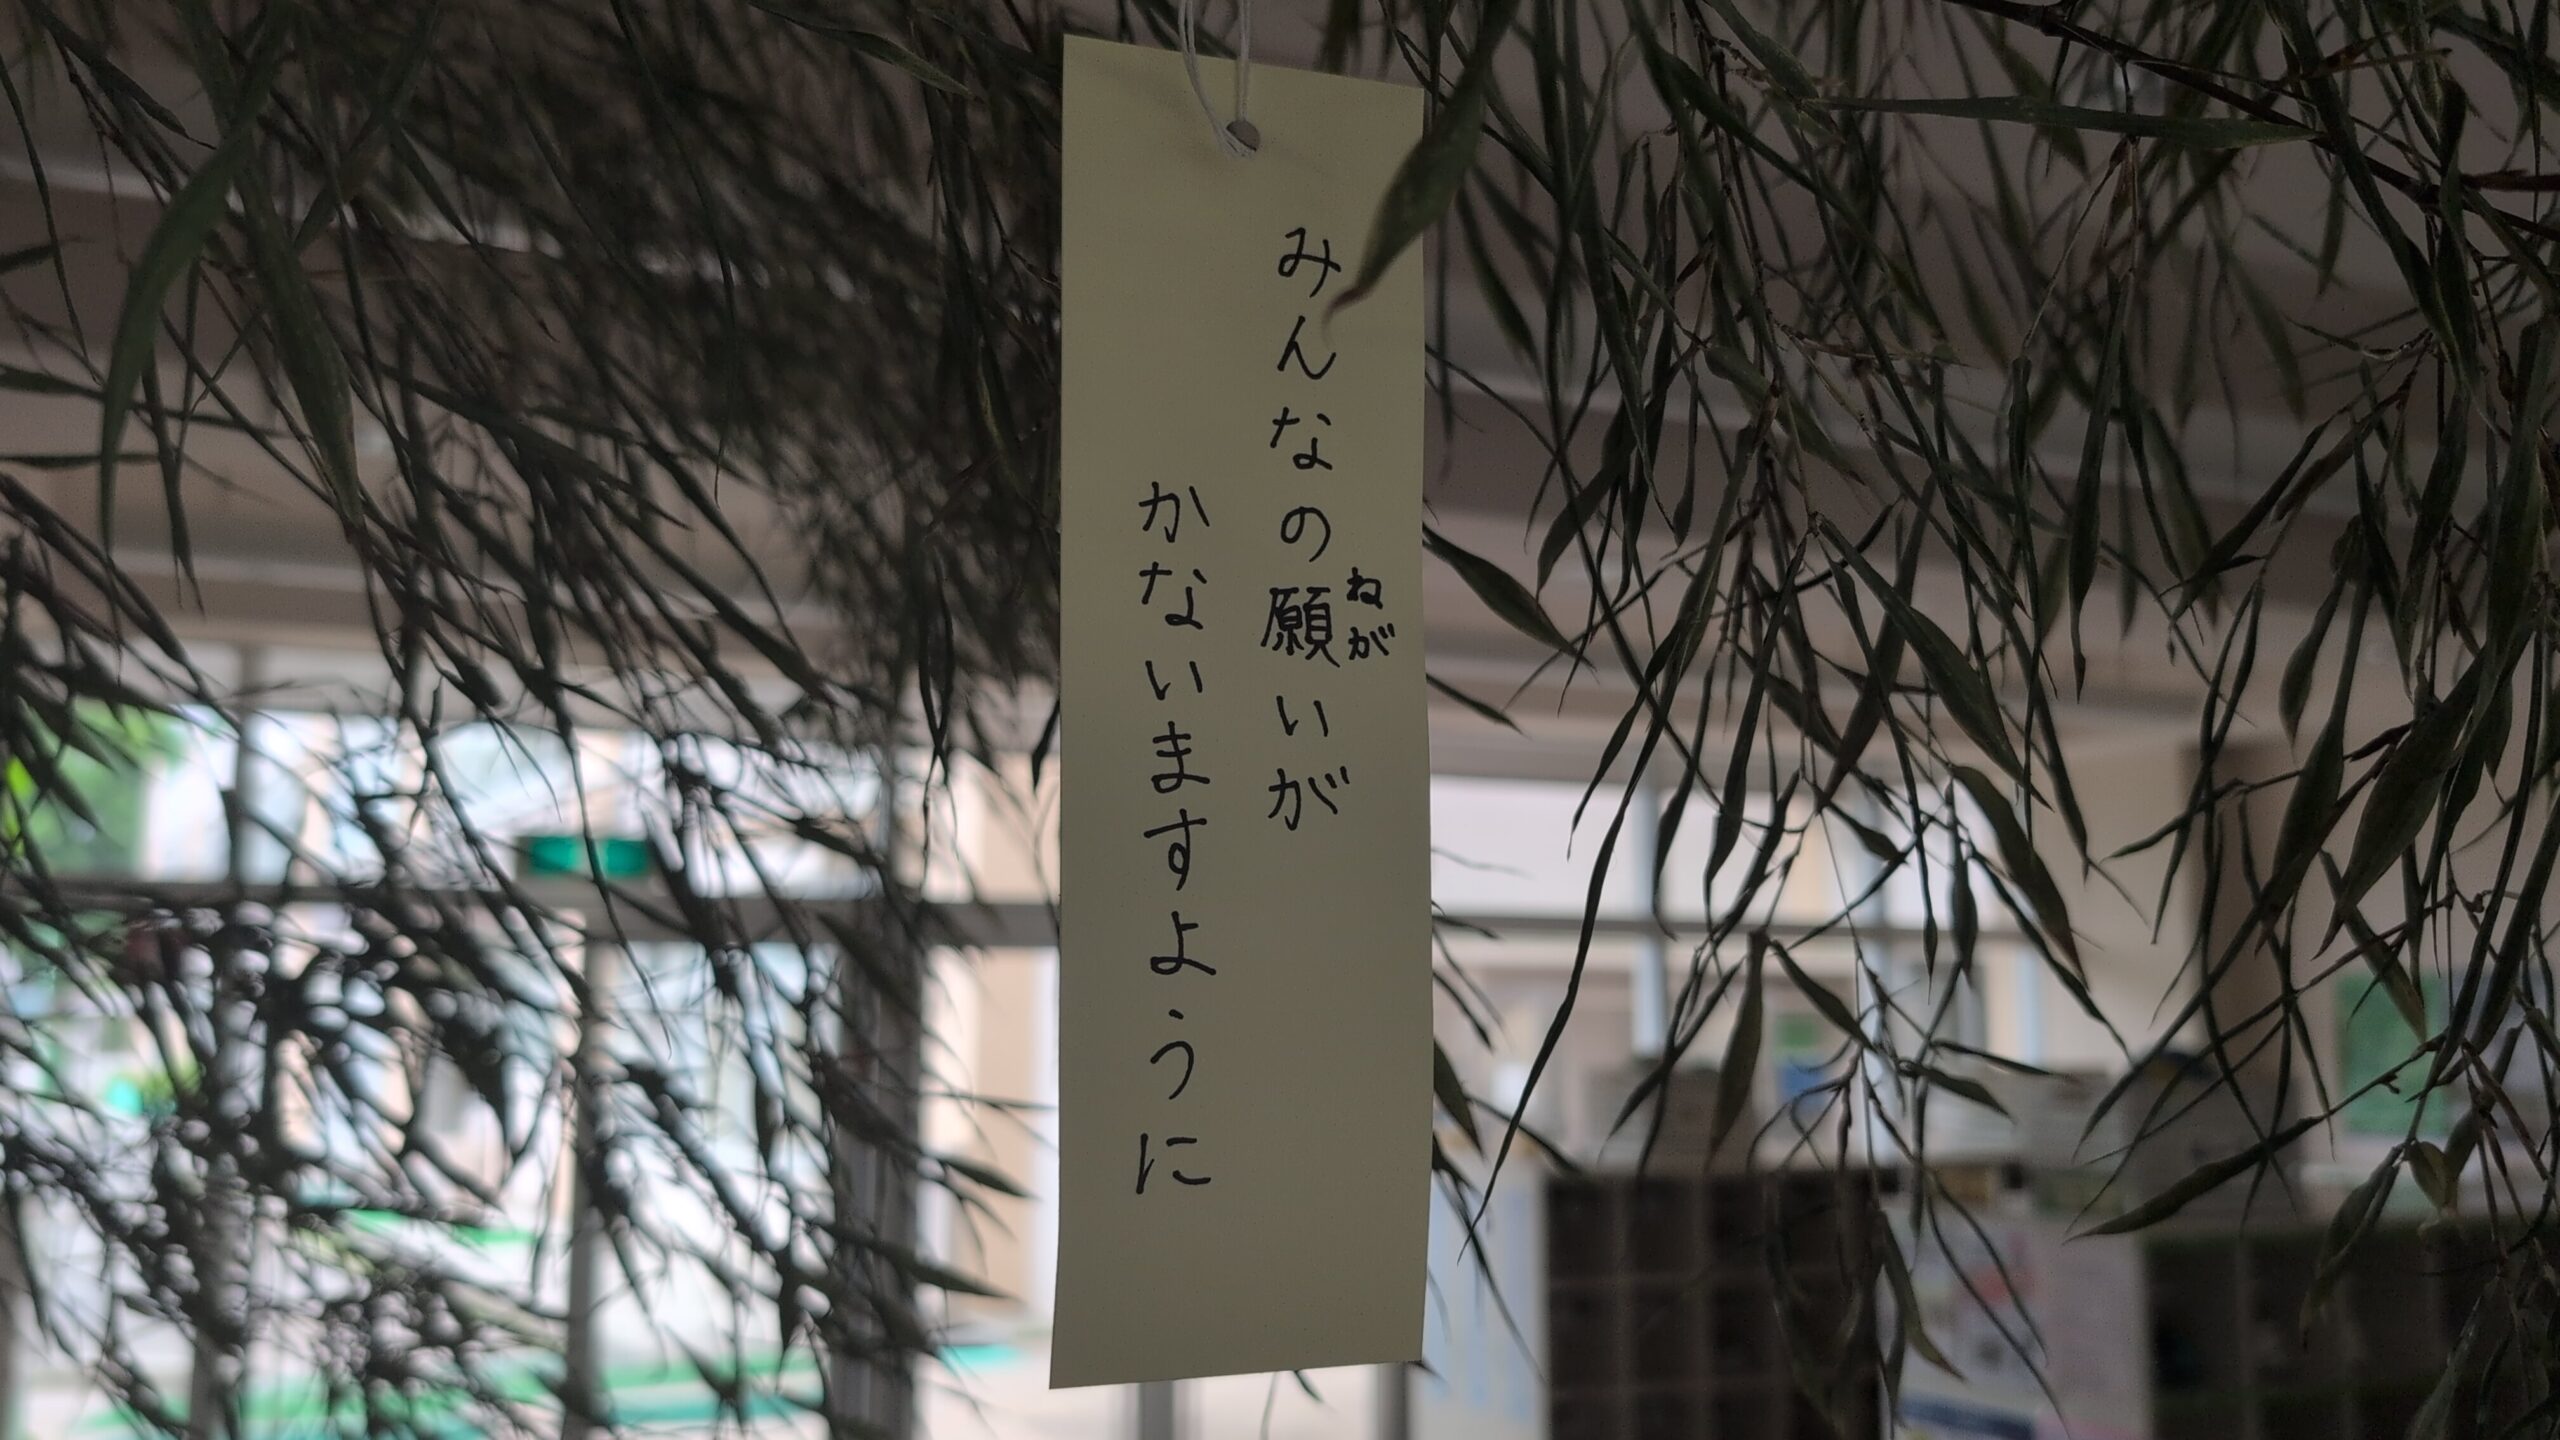 みんなの願いが
ねが
かないますように